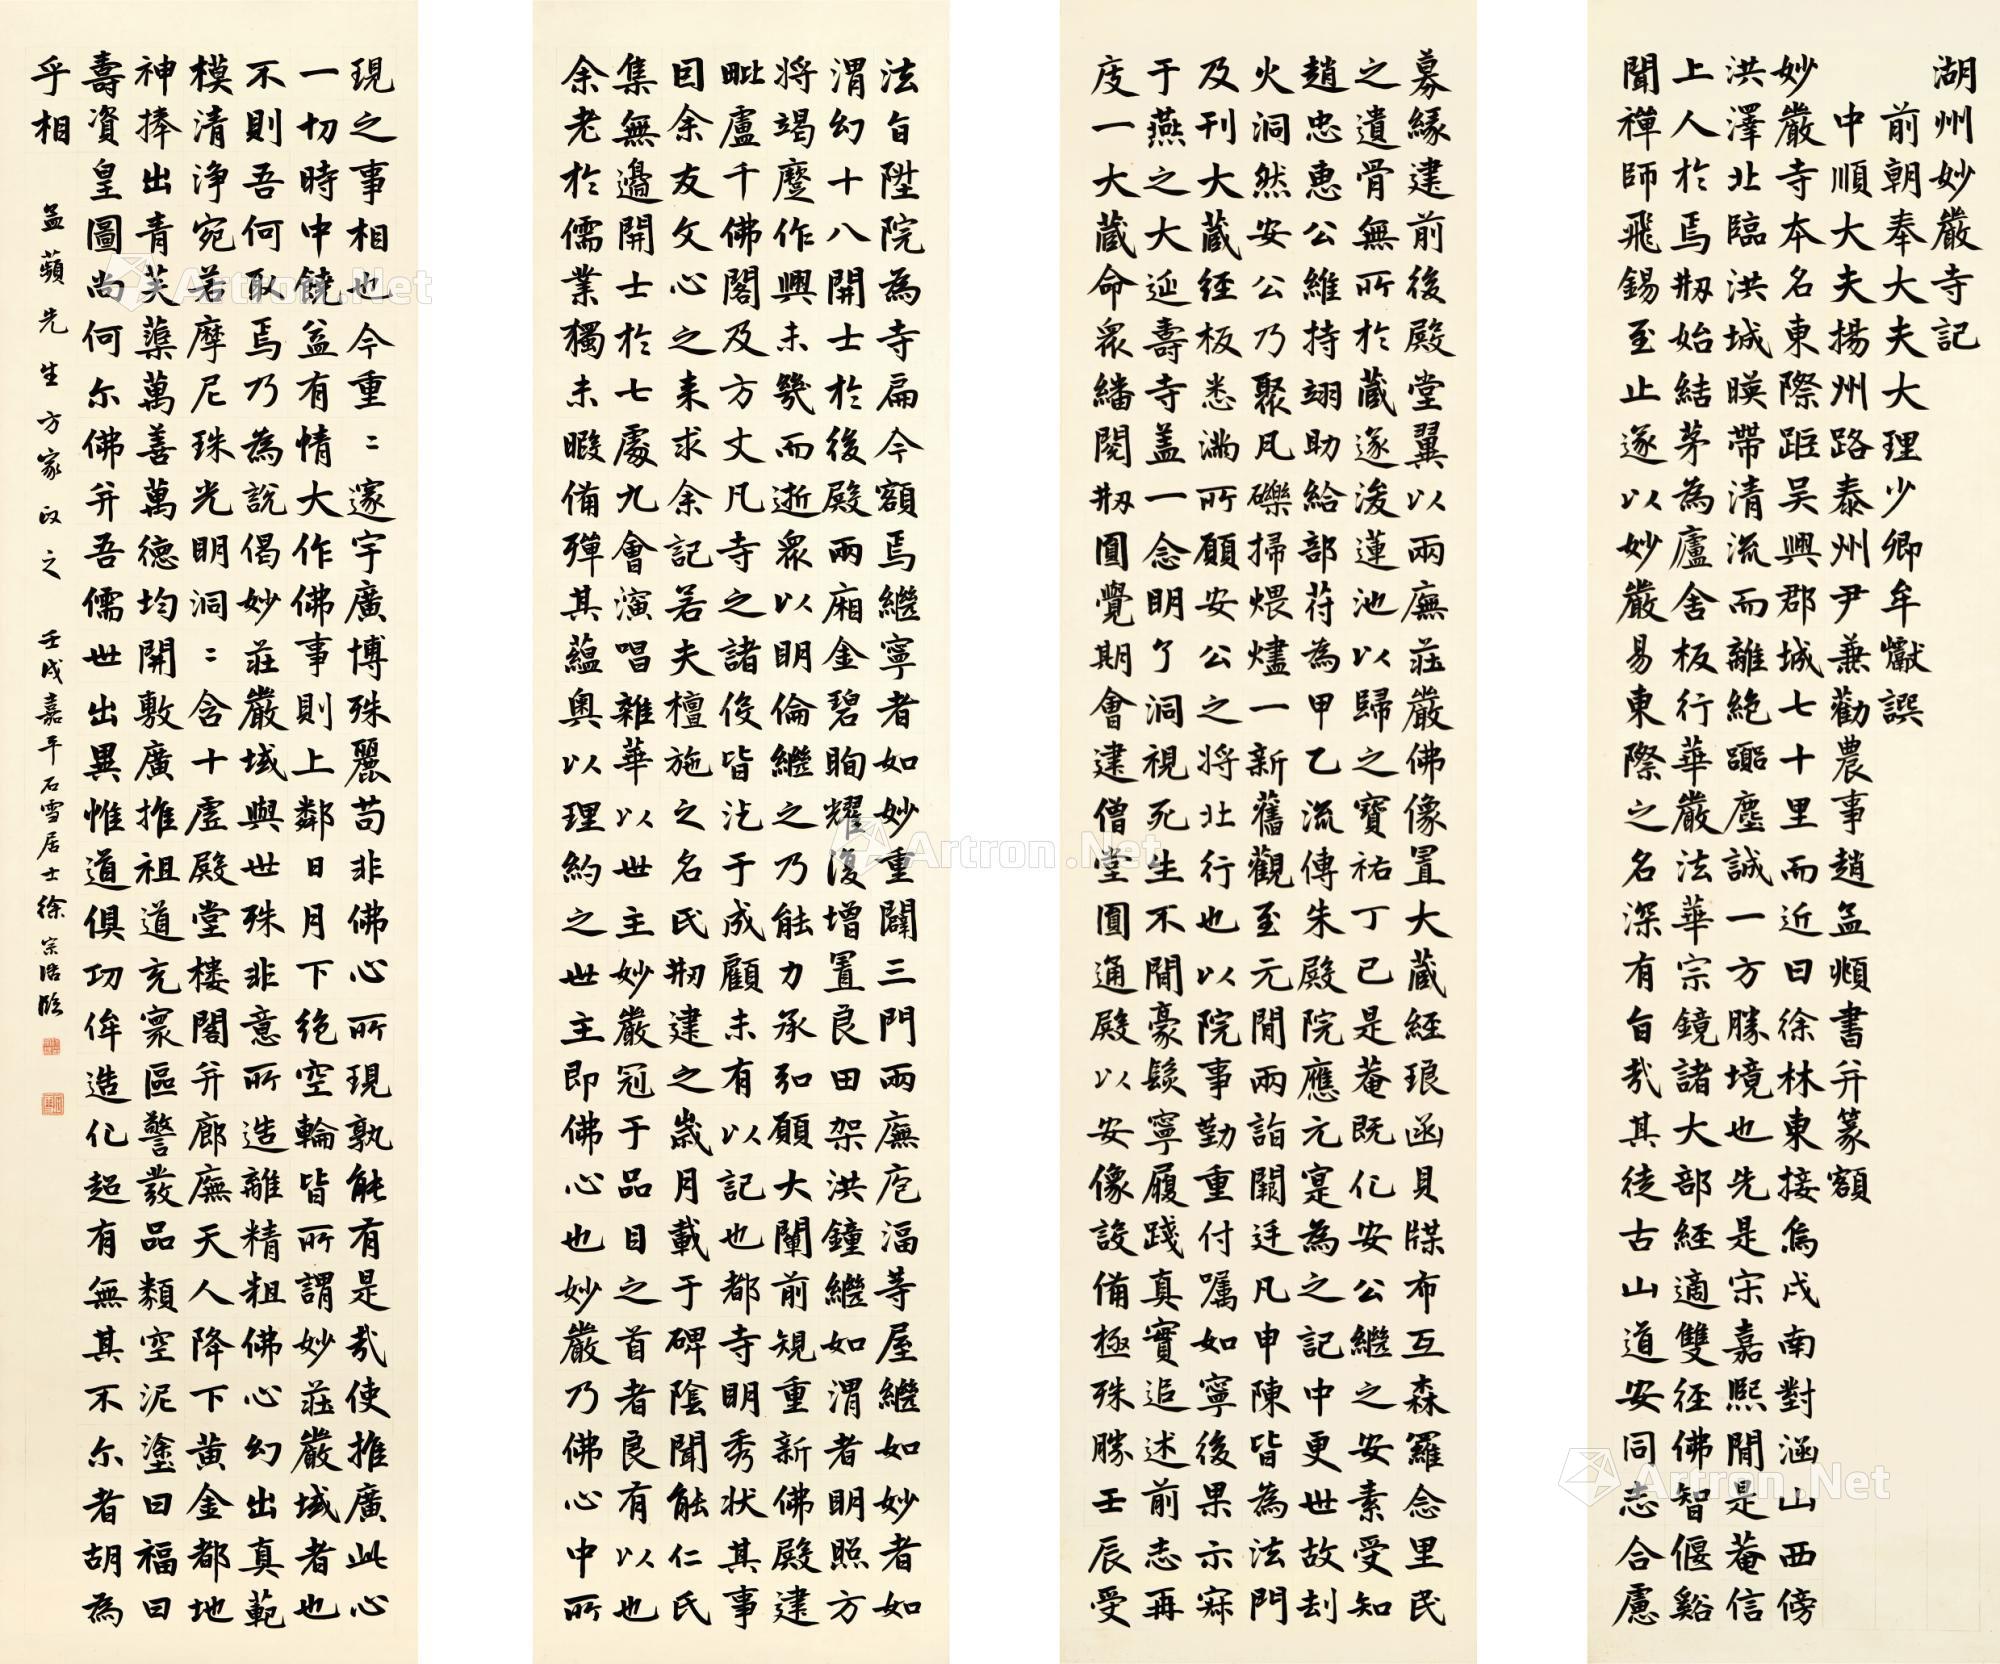 湖州妙嚴寺記
前朝奉大夫大理少卿牟巘譔
中順大夫揚州路泰州尹兼勸農事趙孟頫書并篆額
妙嚴寺本名東際距吳興郡城七十里而近曰徐林東接烏戍南對涵山西傍
洪澤北臨洪城暎帶清流而離絕囂塵誠一方勝境也先是宋嘉熙間是菴信
上人於焉刱始結茅為廬舍板行華嚴法華宗鏡諸大部經適雙徑佛智偃谿
聞禪師飛錫至止遂以妙嚴易東際之名深有旨哉其徒古山道安同志合慮
募緣建前後殿堂翼以兩廡莊嚴佛像置大藏經琅函貝牒布互森羅念里民
之遺骨無所於藏遂浚蓮池以歸之寶祐丁巳是菴既化安公繼之安素受知
趙忠惠公維持翊助給部苻為甲乙流傳朱殿院應元寔為之記中更世故刦
火洞然安公乃聚凡礫掃煨燼一新舊觀至元間兩詣闕廷凡申陳皆為法門
及刊大藏經板悉滿所願安公之將北行也以院事勤重付囑如寧後果示寂
于燕之大延壽寺蓋一念明了洞視死生不間豪髮寧履踐真實追述前志再
庋一大藏命眾繙閱刱圓覺期會建僧堂圓通殿以安像設備極殊勝壬辰受
法旨陞院為寺扁今額焉繼寧者如妙重闢三門兩廡庖湢等屋繼如妙者如
渭幻十八開士於後殿兩廂金碧眴耀復增置良田架洪鐘繼如渭者明照方
將竭麼作興未幾而逝眾以明倫繼之乃能力承弘願大闡前規重新佛殿建
毗盧千佛閣及方丈凡寺之諸役皆汔于成顧未有以記也都寺明秀狀其事
囙余友文心之来求余記若夫檀施之名氏刱建之歲月載于碑陰聞能仁氏
集無邊開士於七處九會演唱雜華以世主妙嚴冠于品目之首者良有以也
余老於儒業獨未暇備殫其蘊奧以理約之世主即佛心也妙嚴乃佛心中所
現之事相也今重:邃宇廣博殊麗苟非佛心所現孰能有是哉使推廣此心
一切時中饒益有情大作佛事則上鄰日月下絕空輪皆所謂妙莊嚴域者也
不則吾何取焉乃為說偈妙莊嚴域與世殊非意所造離精粗佛心幻出真範
模清淨宛若摩尼珠光明洞:含十虛殿堂樓閣并廊廡天人降下黄金都地
神捧出青芙蕖萬善萬德均開敷廣推祖道充寰區警發品類空泥塗曰福曰
壽資皇圖尚何尒佛并吾儒世出異惟道俱功侔造化超有無其不尒者胡為
乎相
孟蘋先生方家政之 壬戌嘉平石雪居士徐宗浩臨
Artron.Net
Artron.Net
Artron.Net